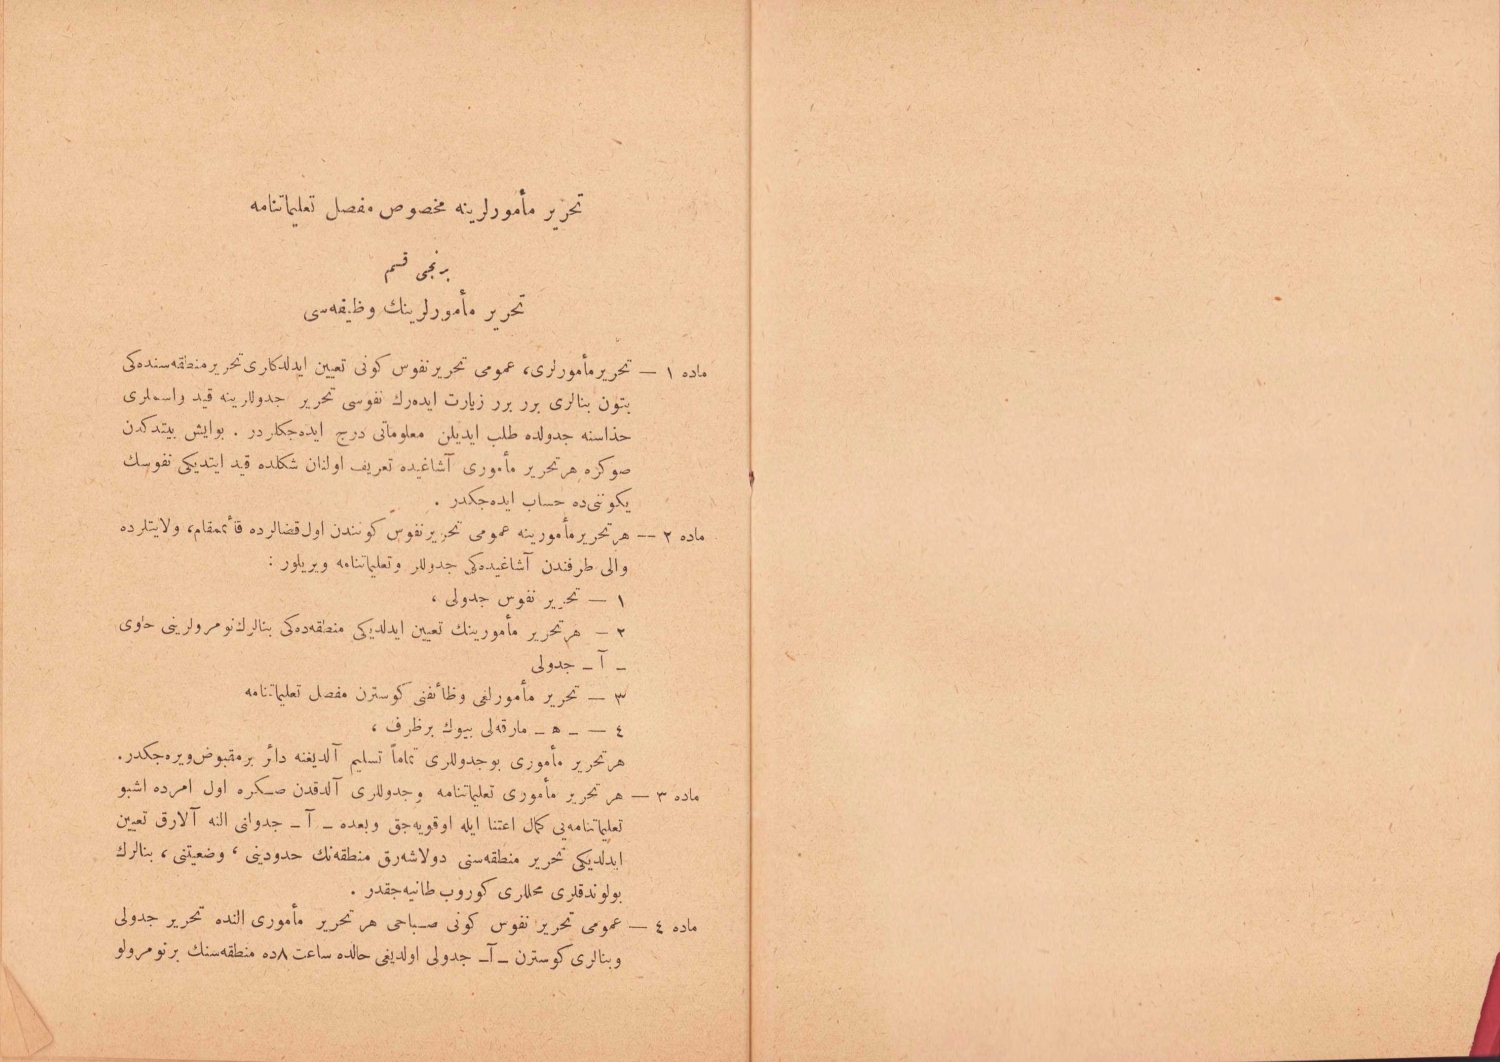 تحریر مأمورلرینه مخصوص مفصل تعلیماتنامه
برنجی قسم
تحریر مأمورلرینك وظیفه‌سی
ماده ۱ — تحریر مأمورلری، عمومی تحریر نفوس كونی تعیین ایدلدكاری تحریر منطقه‌سنده‌كی
بتون بنالری برر برر زیارت ایده‌رك نفوسی تحریر جدوللرینه قید واسملری
حذاسنه جدولده طلب ایدیلن معلوماتی درج ایده‌جكلردر . بوایش بیتدكدن
صوكره هر تحریر مأموری آشاغیده تعریف اولنان شكلده قید ایتدیكی نفوسك
یكوننی‌ده حساب ایده‌جكدر .
ماده ۲ — هر تحریر مأمورینه عمومی تحریر نفوس كونندن اول قضالرده قائممقام، ولایتلرده
والی طرفندن آشاغیده‌كی جدوللر وتعلیماتنامه ویریلور :
۱ — تحریر نفوس جدولی ،
۲ — هر تحریر مأمورینك تعیین ایدلدیكی منطقه‌ده‌كی بنالرك نومرولرینی حاوی
ـ آ ـ جدولی
۳ — تحریر مأمورلغی وظائفنی كوسترن مفصل تعلیماتنامه
٤ — ـ ه ـ مارقه‌لی بیوك برظرف ،
هر تحریر مأموری بوجدوللری تماماً تسلیم آلدیغنه دائر برمقبوض ویره‌جكدر.
ماده ۳ — هر تحریر مأموری تعلیماتنامه وجدوللری آلدقدن صكره اول امرده اشبو
تعلیماتنامه‌یی كمال اعتنا ایله اوقویه‌جق وبعده ـ آ ـ جدولنی النه آلارق تعیین
ایدلدیكی تحریر منطقه‌سنی دولاشه‌رق منطقه‌نك حدودینی ، وضعیتنی ، بنالرك
بولوندقلری محللری كوروب طانیه‌جقدر .
ماده ٤ — عمومی تحریر نفوس كونی صباحی هر تحریر مأموری النده تحریر جدولی
وبنالری كوسترن ـ آ ـ جدولی اولدیغی حالده ساعت ۸ده منطقه‌سنك برنومرولو